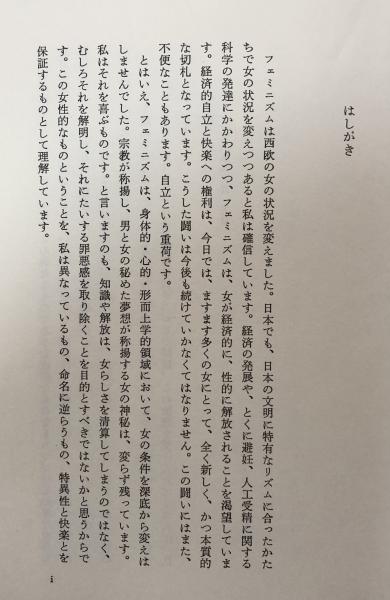 はしがき
フェミニズムは西欧の女の状況を変えました。日本でも、日本の文明に特有なリズムに合ったかた
ちで女の状況を変えつつあると私は確信しています。経済の発展や、とくに避妊、人工受精に関する
科学の発達にかかわりつつ、フェミニズムは、女が経済的に、性的に解放されることを渇望していま
す。経済的自立と快楽への権利は、今日では、ますます多くの女にとって、全く新しく、かつ本質的
な切札となっています。こうした闘いは今後も続けていかなくてはなりません。この闘いにはまた、
不便なこともあります。自立という重荷です。
とはいえ、フェミニズムは、身体的・心的・形而上学的領域において、女の条件を深底から変えは
しませんでした。宗教が称揚し、男と女の秘めた夢想が称揚する女の神秘は、変らず残っています。
私はそれを喜ぶものです。と言いますのも、知識や解放は、女らしさを清算してしまうのではなく、
むしろそれを解明し、それにたいする罪悪感を取り除くことを目的とすべきではないかと思うからで
す。この女性的なものということを、私は異なっているもの、命名に逆らうもの、特異性と快楽とを
保証するものとして理解しています。
i